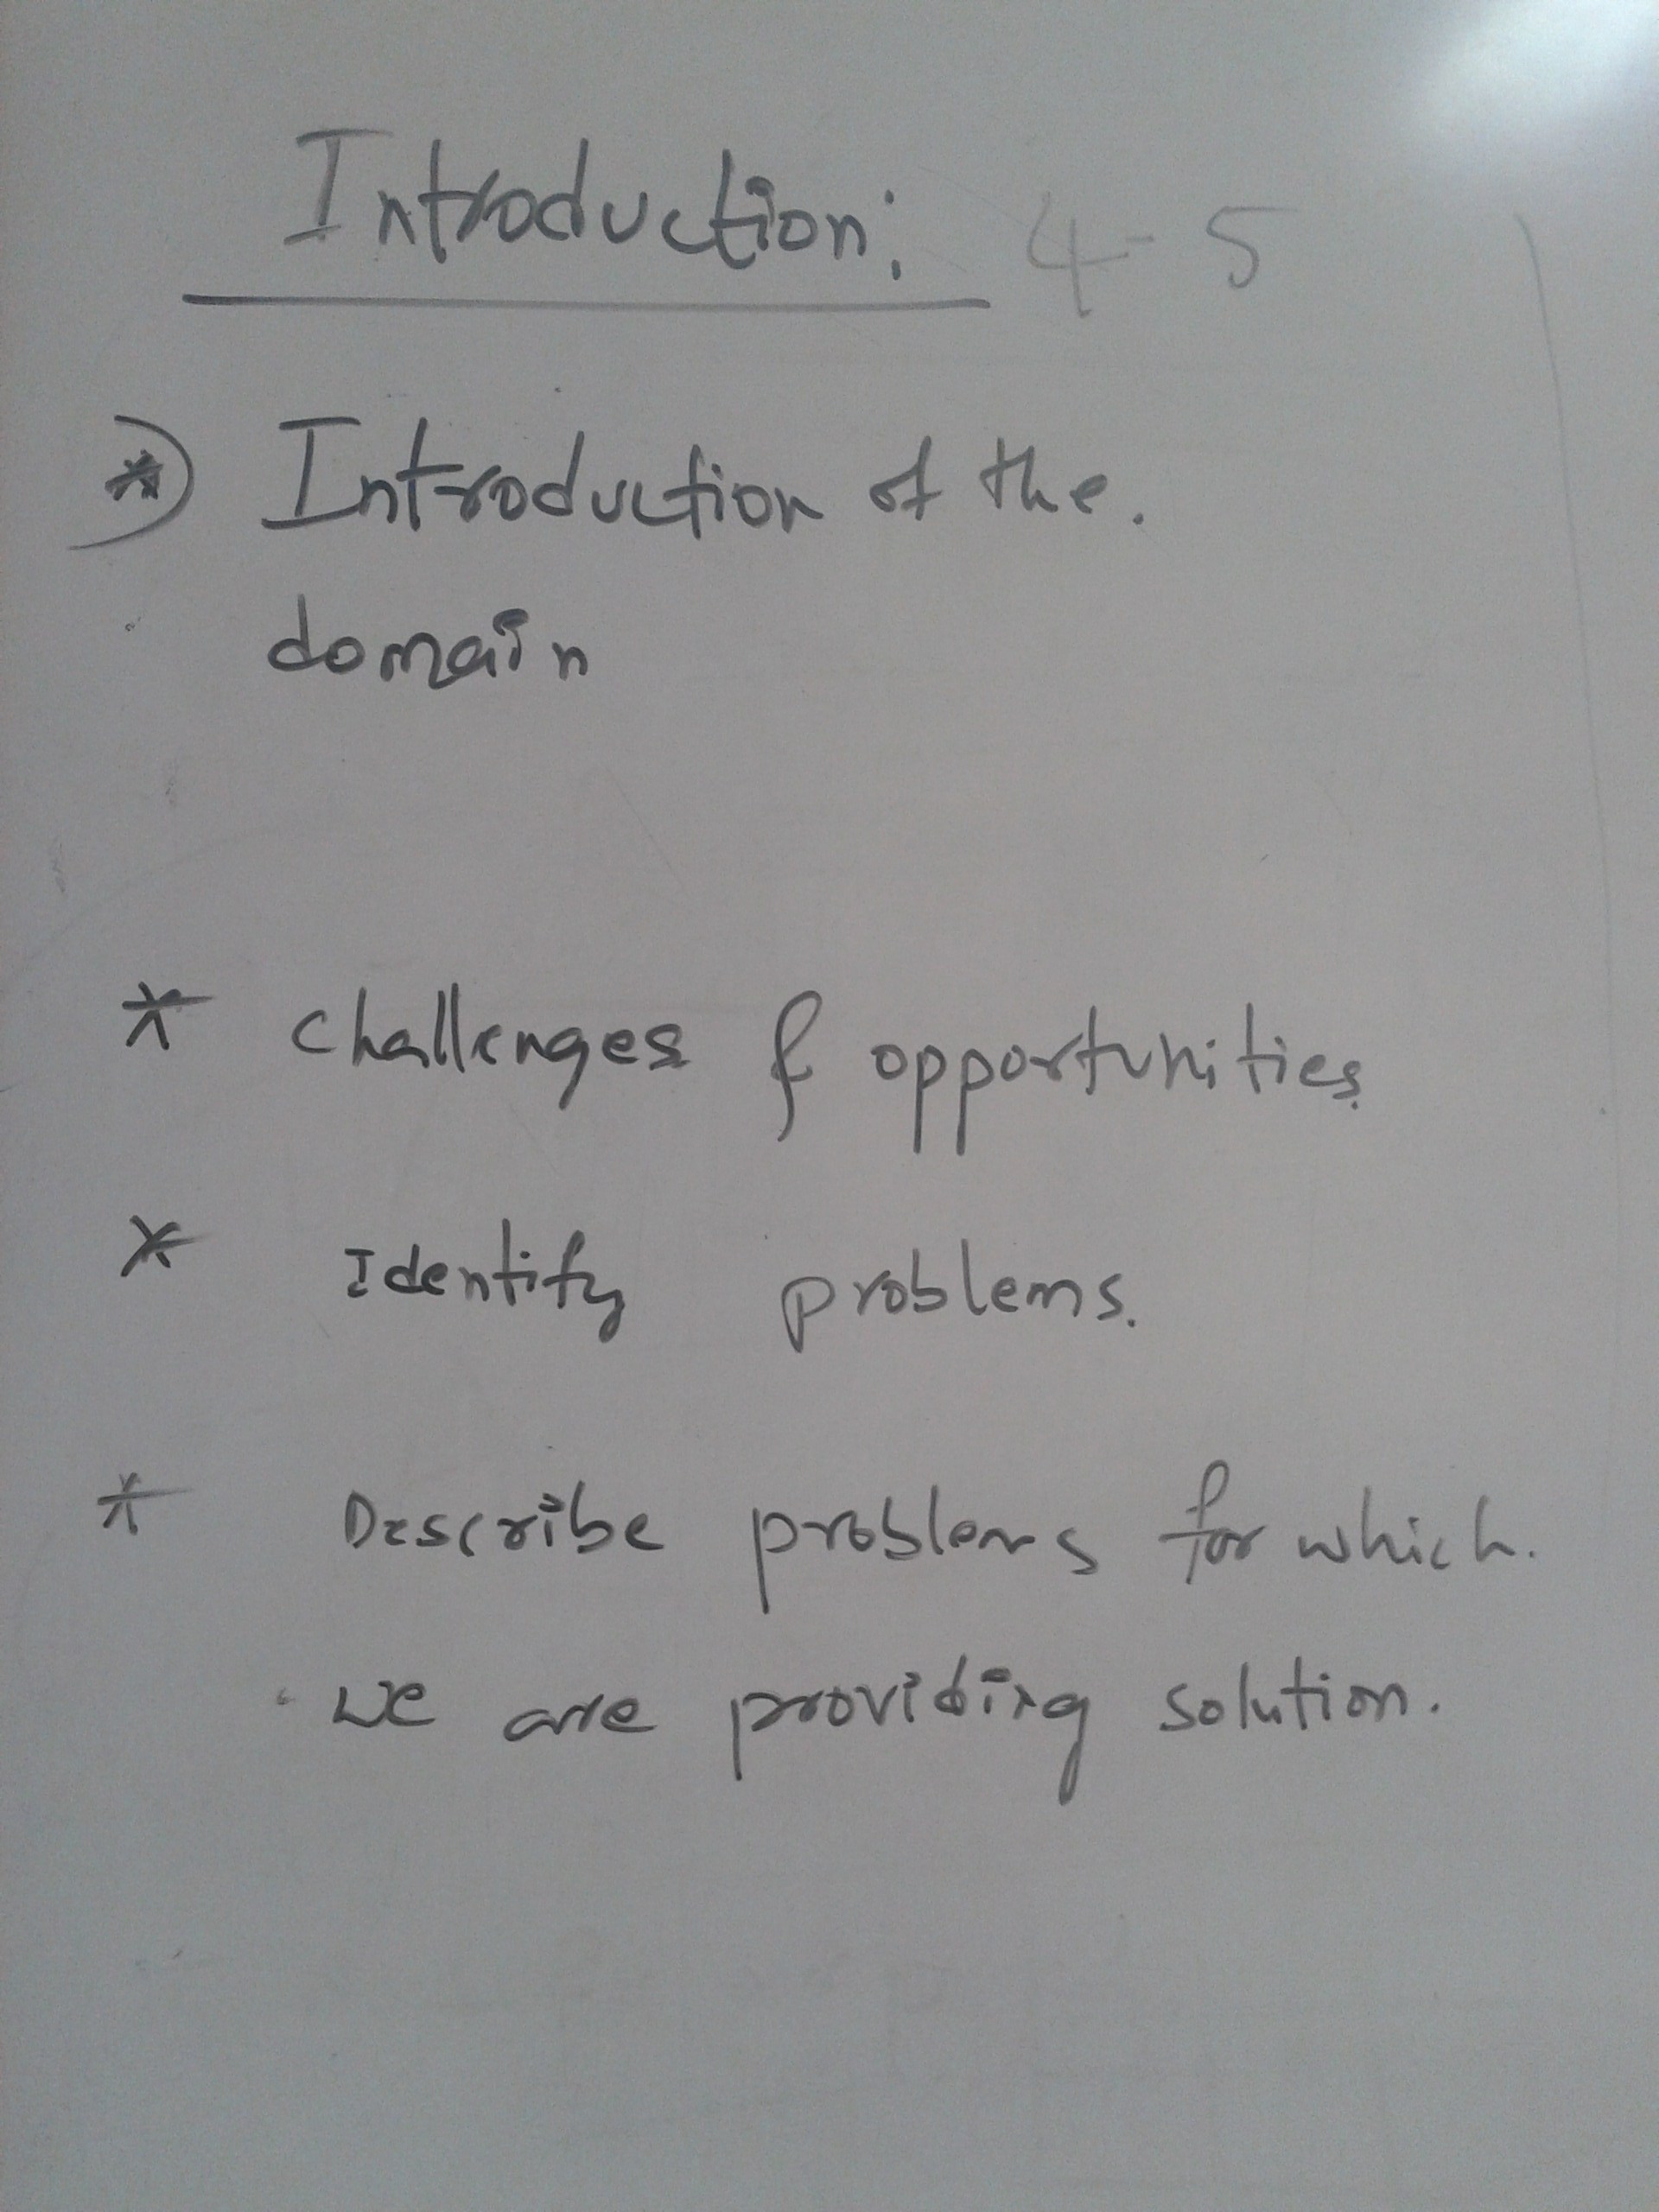 Introduction: 4-5
*) Introduction of the.
domain
* challenges & opportunities.
* Identify problems.
* Describe problems for which.
we are providing solution.